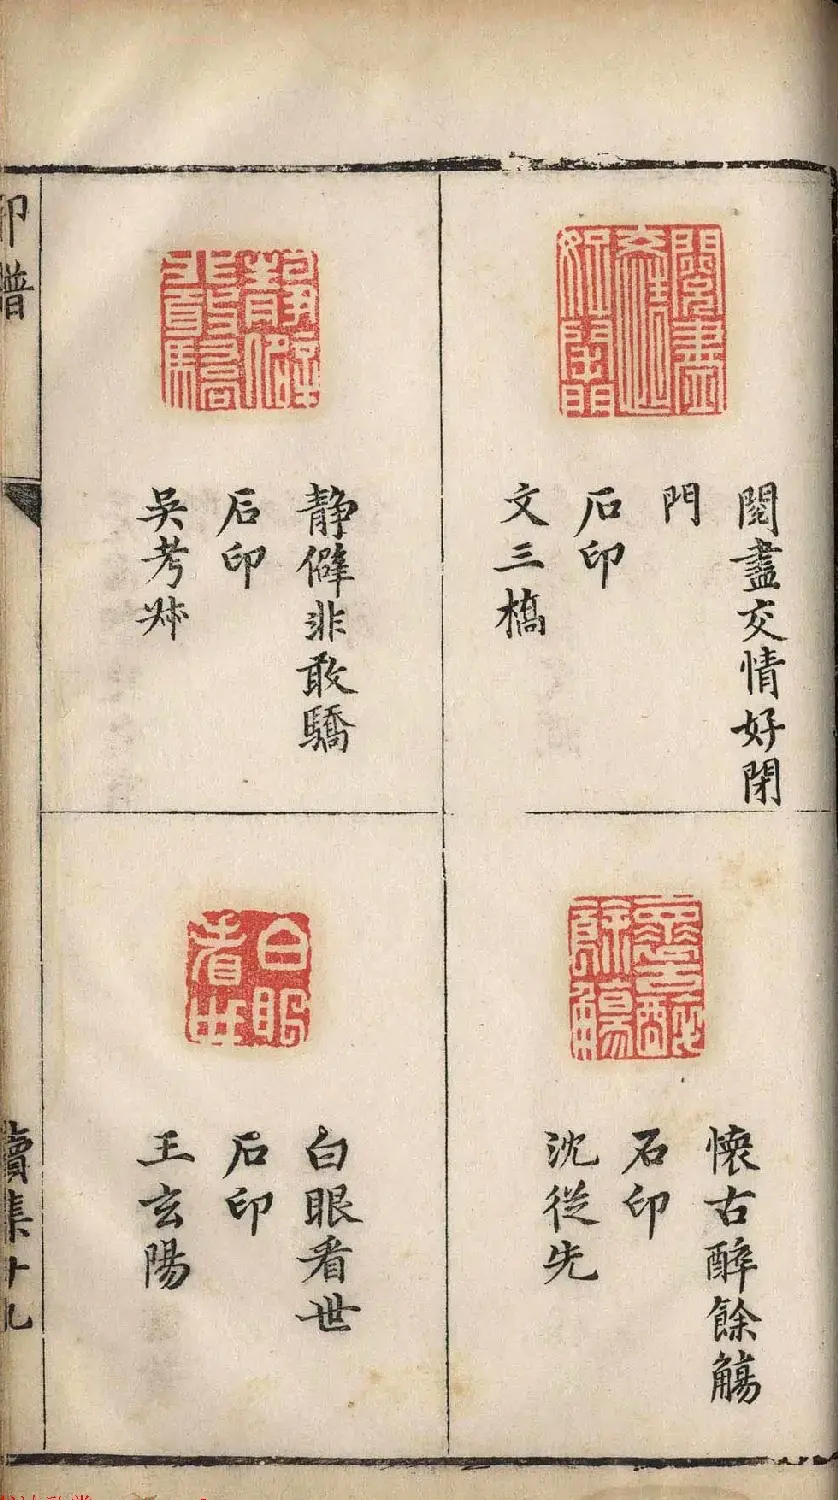 閱盡交情好閉
門
石印
文三橋
懷古醉餘觴
石印
沈從先
静僻非敢驕
石印
吳考叔
白眼看世
石印
王玄陽
印譜
續集十九